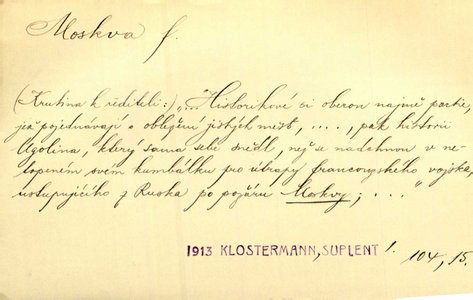 Moskva f.
(Krutina k řediteli:) „... Historikové si oberou najmě partie,
jež pojednávají o obležení jistých měst, ...., pak historii
Ugolina, který sama sebe snědl, než se nadchnou v ne-
topeném svém kumbálku pro útrapy francouzského vojska,
ustupujícího z Ruska po požáru Moskvy; ...."
1913 KLOSTERMANN, SUPLENT
104, 15.